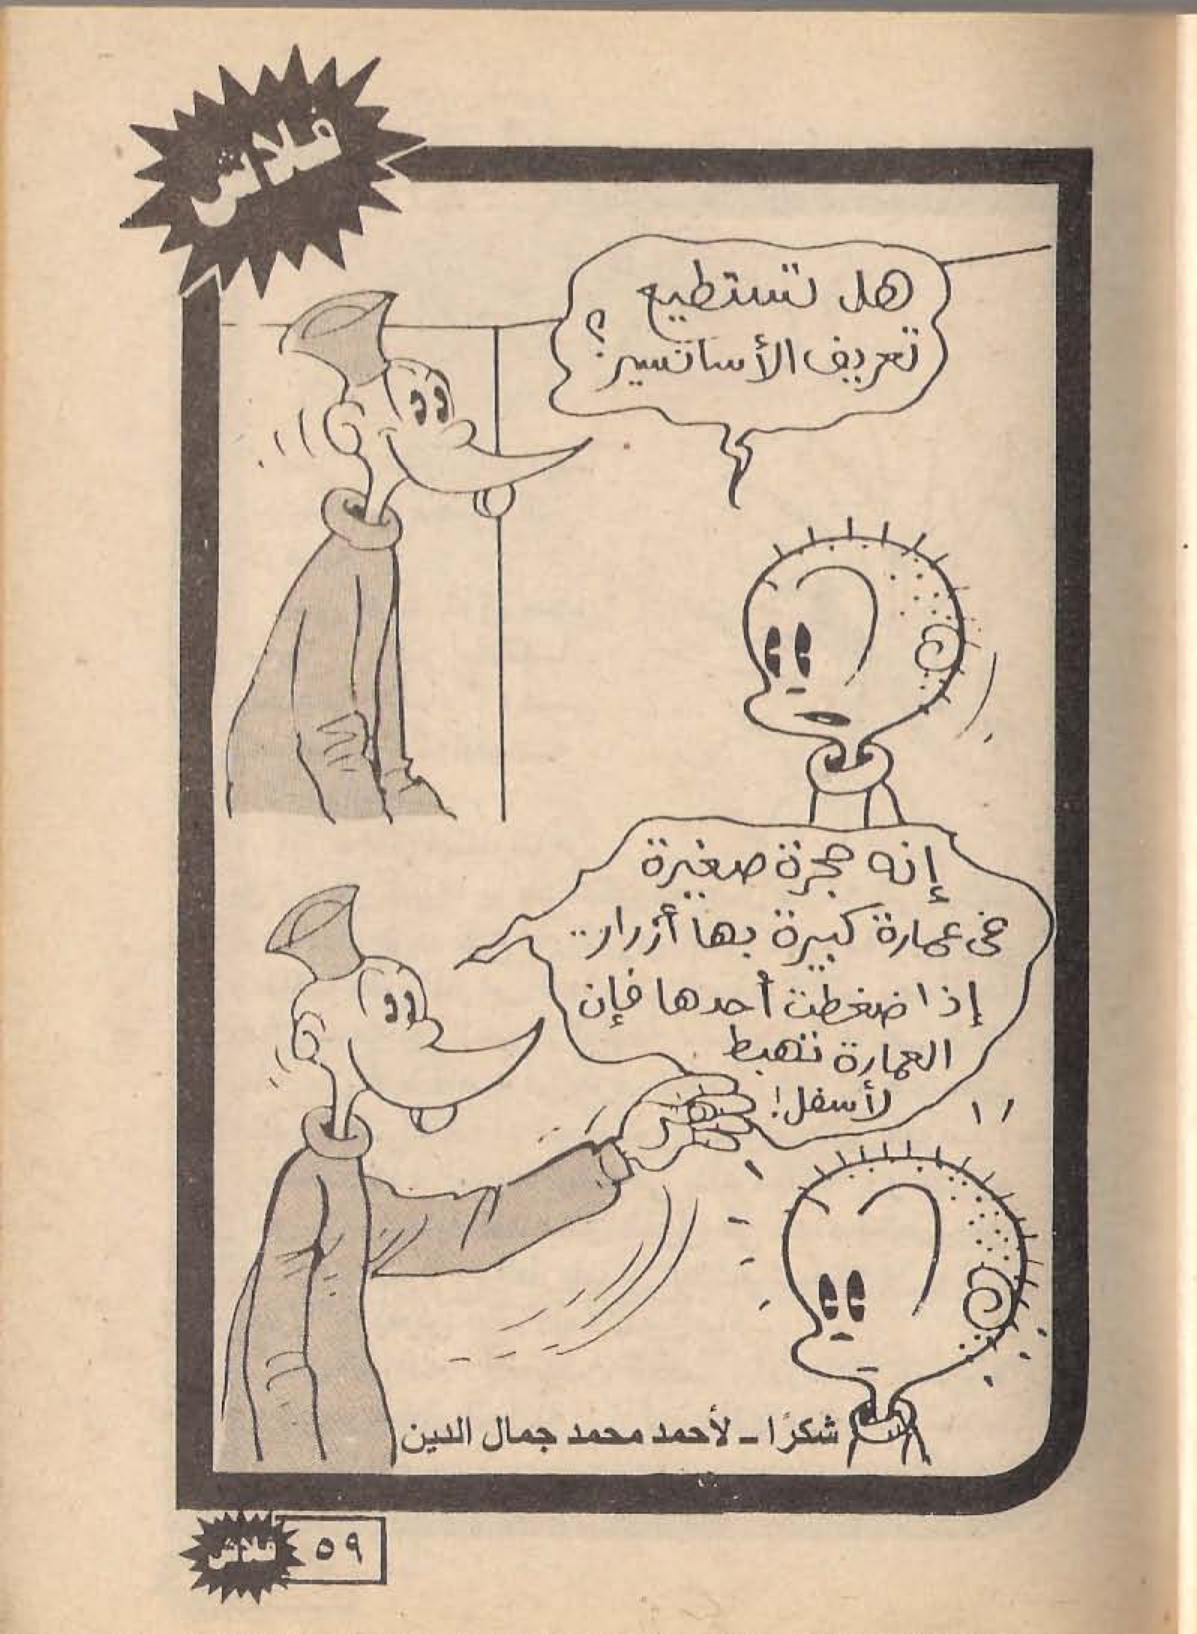 فلاش
هل تستطيع
تعريف الأسانسير؟
إنه حجرة صغيرة
فى عمارة كبيرة بها أزرار..
إذا ضغطت أحدها فإن
العمارة تهبط
لأسفل!
شكرًا - لأحمد محمد جمال الدين
فلاش ٥٩